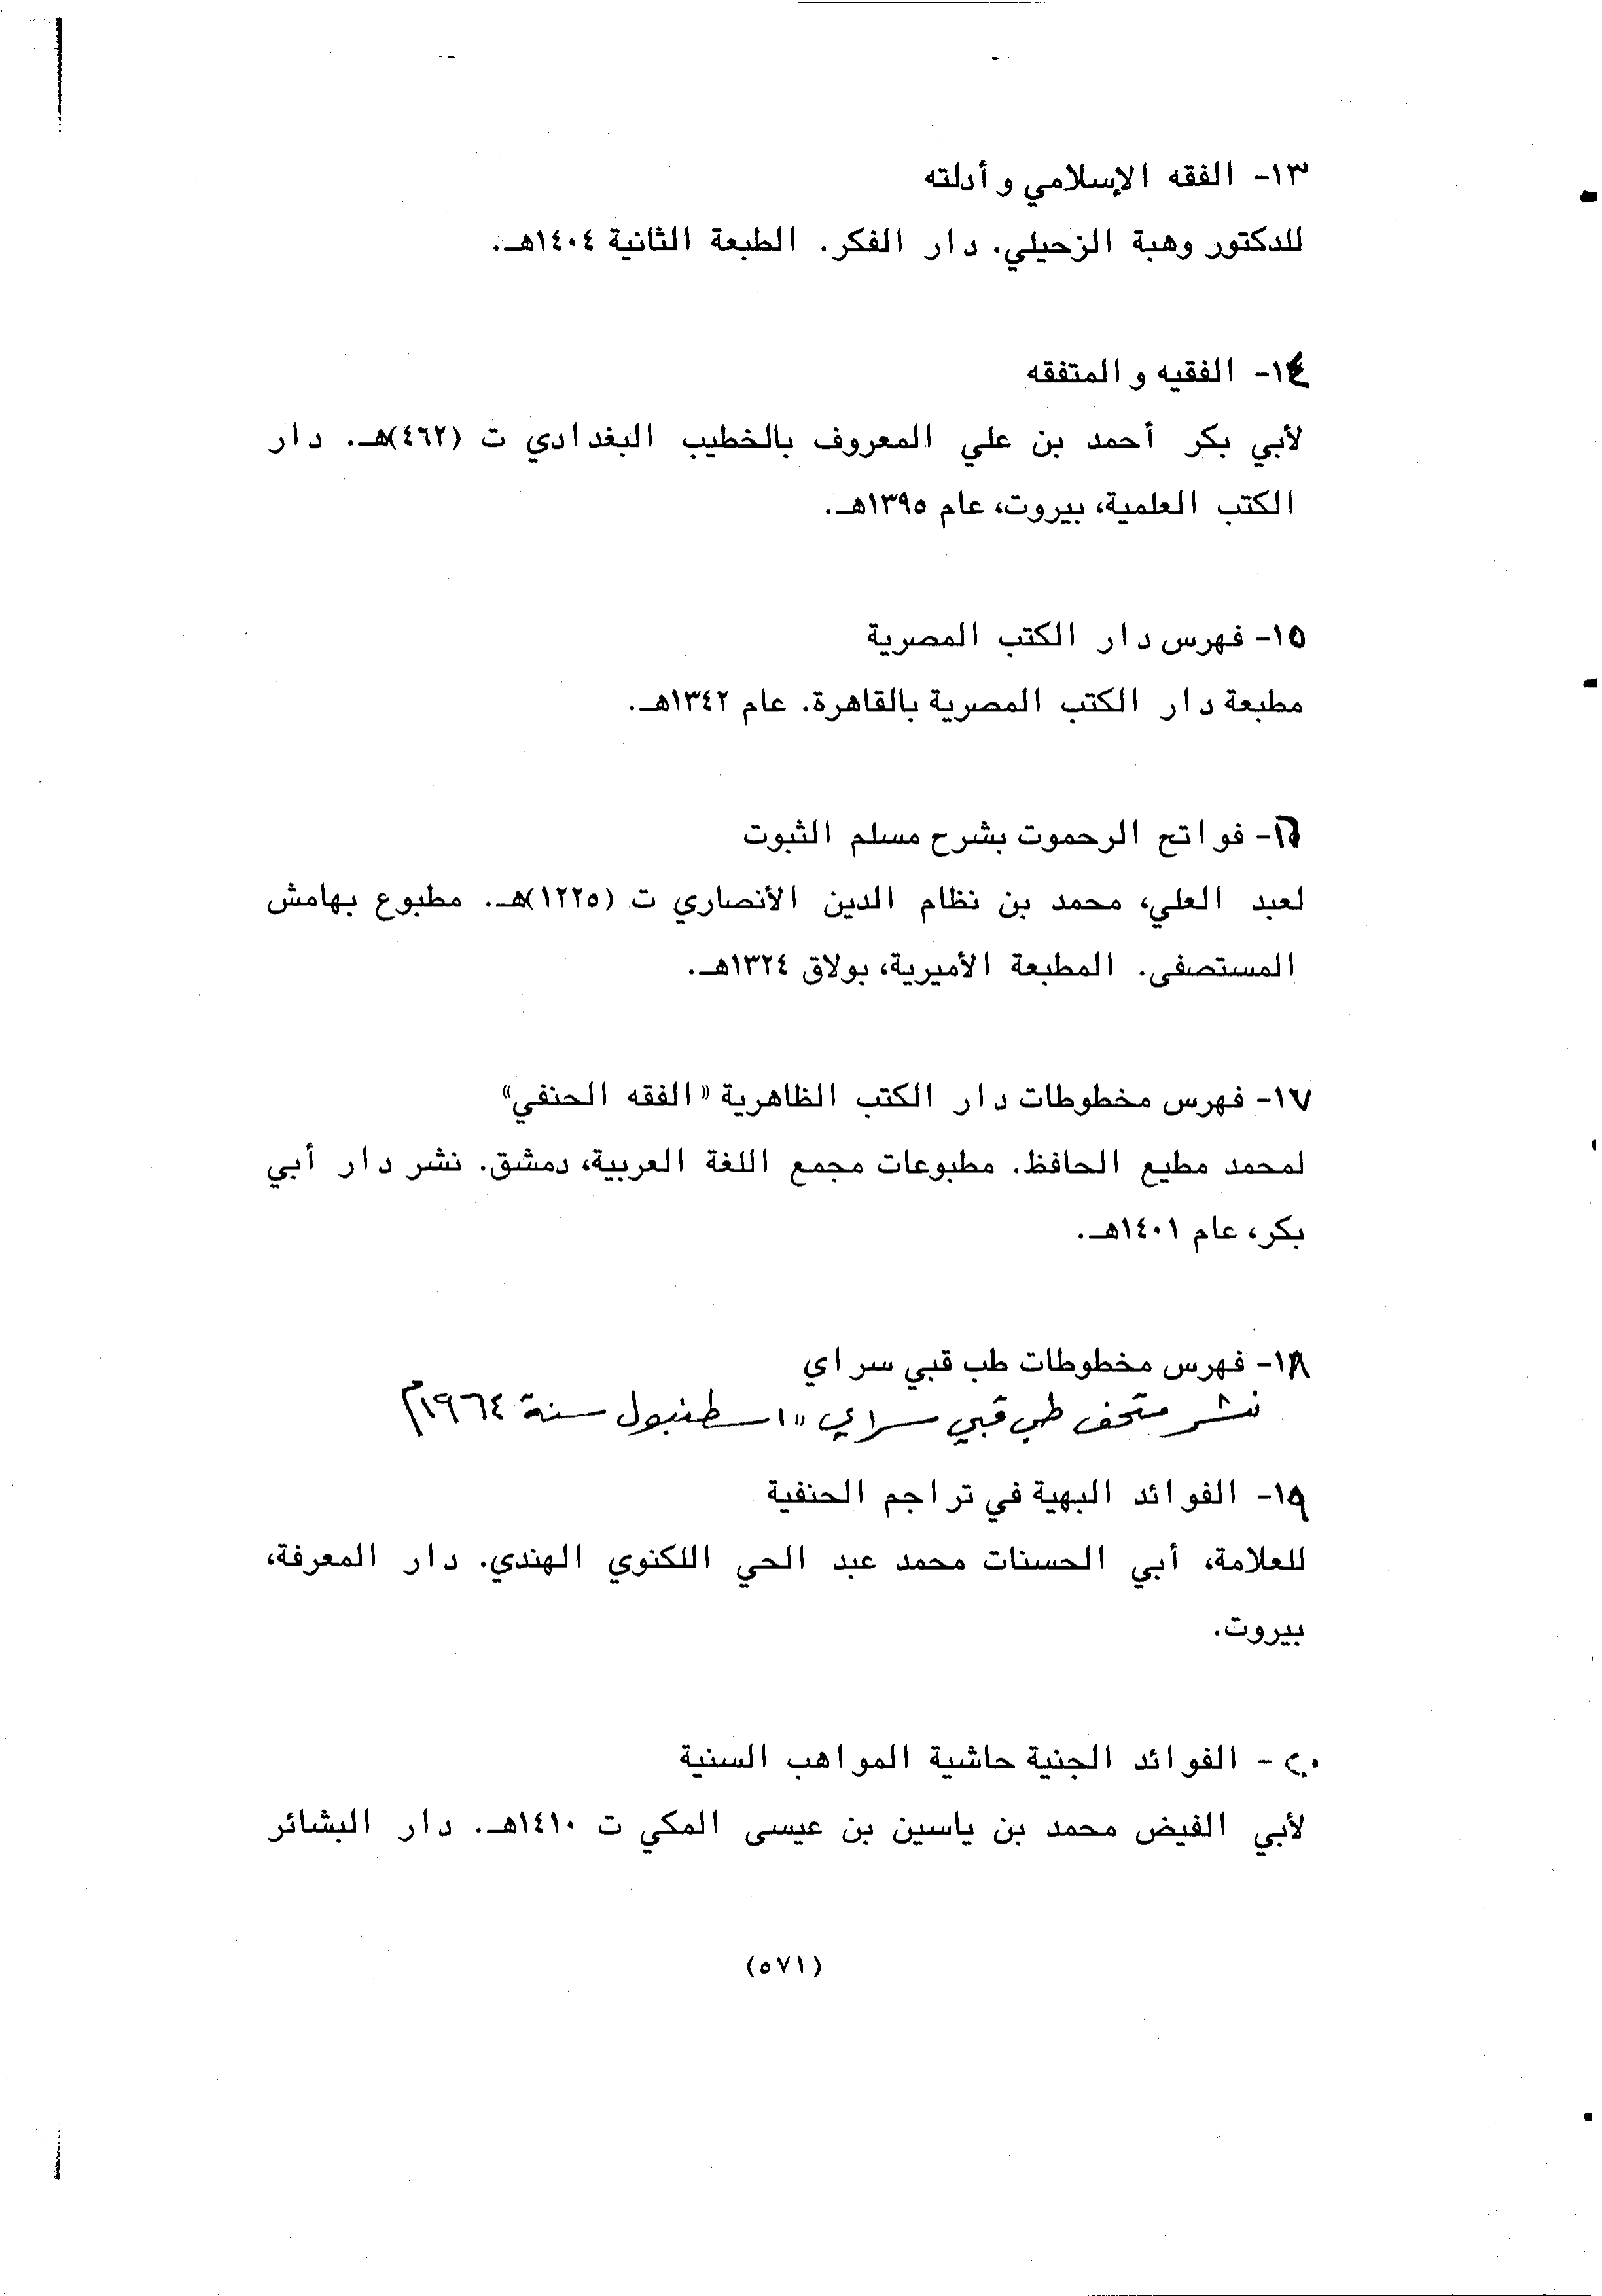 ١٣- الفقه الإسلامي وأدلته
للدكتور وهبة الزحيلي. دار الفكر. الطبعة الثانية ١٤٠٤هـ.
١٤- الفقيه والمتفقه
لأبي بكر أحمد بن علي المعروف بالخطيب البغدادي ت (٤٦٢)هـ. دار
الكتب العلمية، بيروت، عام ١٣٩٥هـ.
١٥- فهرس دار الكتب المصرية
مطبعة دار الكتب المصرية بالقاهرة. عام ١٣٤٢هـ.
١٦- فواتح الرحموت بشرح مسلم الثبوت
لعبد العلي، محمد بن نظام الدين الأنصاري ت (١٢٢٥)هـ. مطبوع بهامش
المستصفى. المطبعة الأميرية، بولاق ١٣٢٤هـ.
١٧- فهرس مخطوطات دار الكتب الظاهرية «الفقه الحنفي»
لمحمد مطيع الحافظ. مطبوعات مجمع اللغة العربية، دمشق. نشر دار أبي
بكر، عام ١٤٠١هـ.
١٨- فهرس مخطوطات طب قبي سراي
نشر متحف طبي قبي سراي "اسطنبول سنة ١٩٦٤م
١٩- الفوائد البهية في تراجم الحنفية
للعلامة، أبي الحسنات محمد عبد الحي اللكنوي الهندي. دار المعرفة،
بيروت.
٢٠- الفوائد الجنية حاشية المواهب السنية
لأبي الفيض محمد بن ياسين بن عيسى المكي ت ١٤١٠هـ. دار البشائر
(٥٧١)